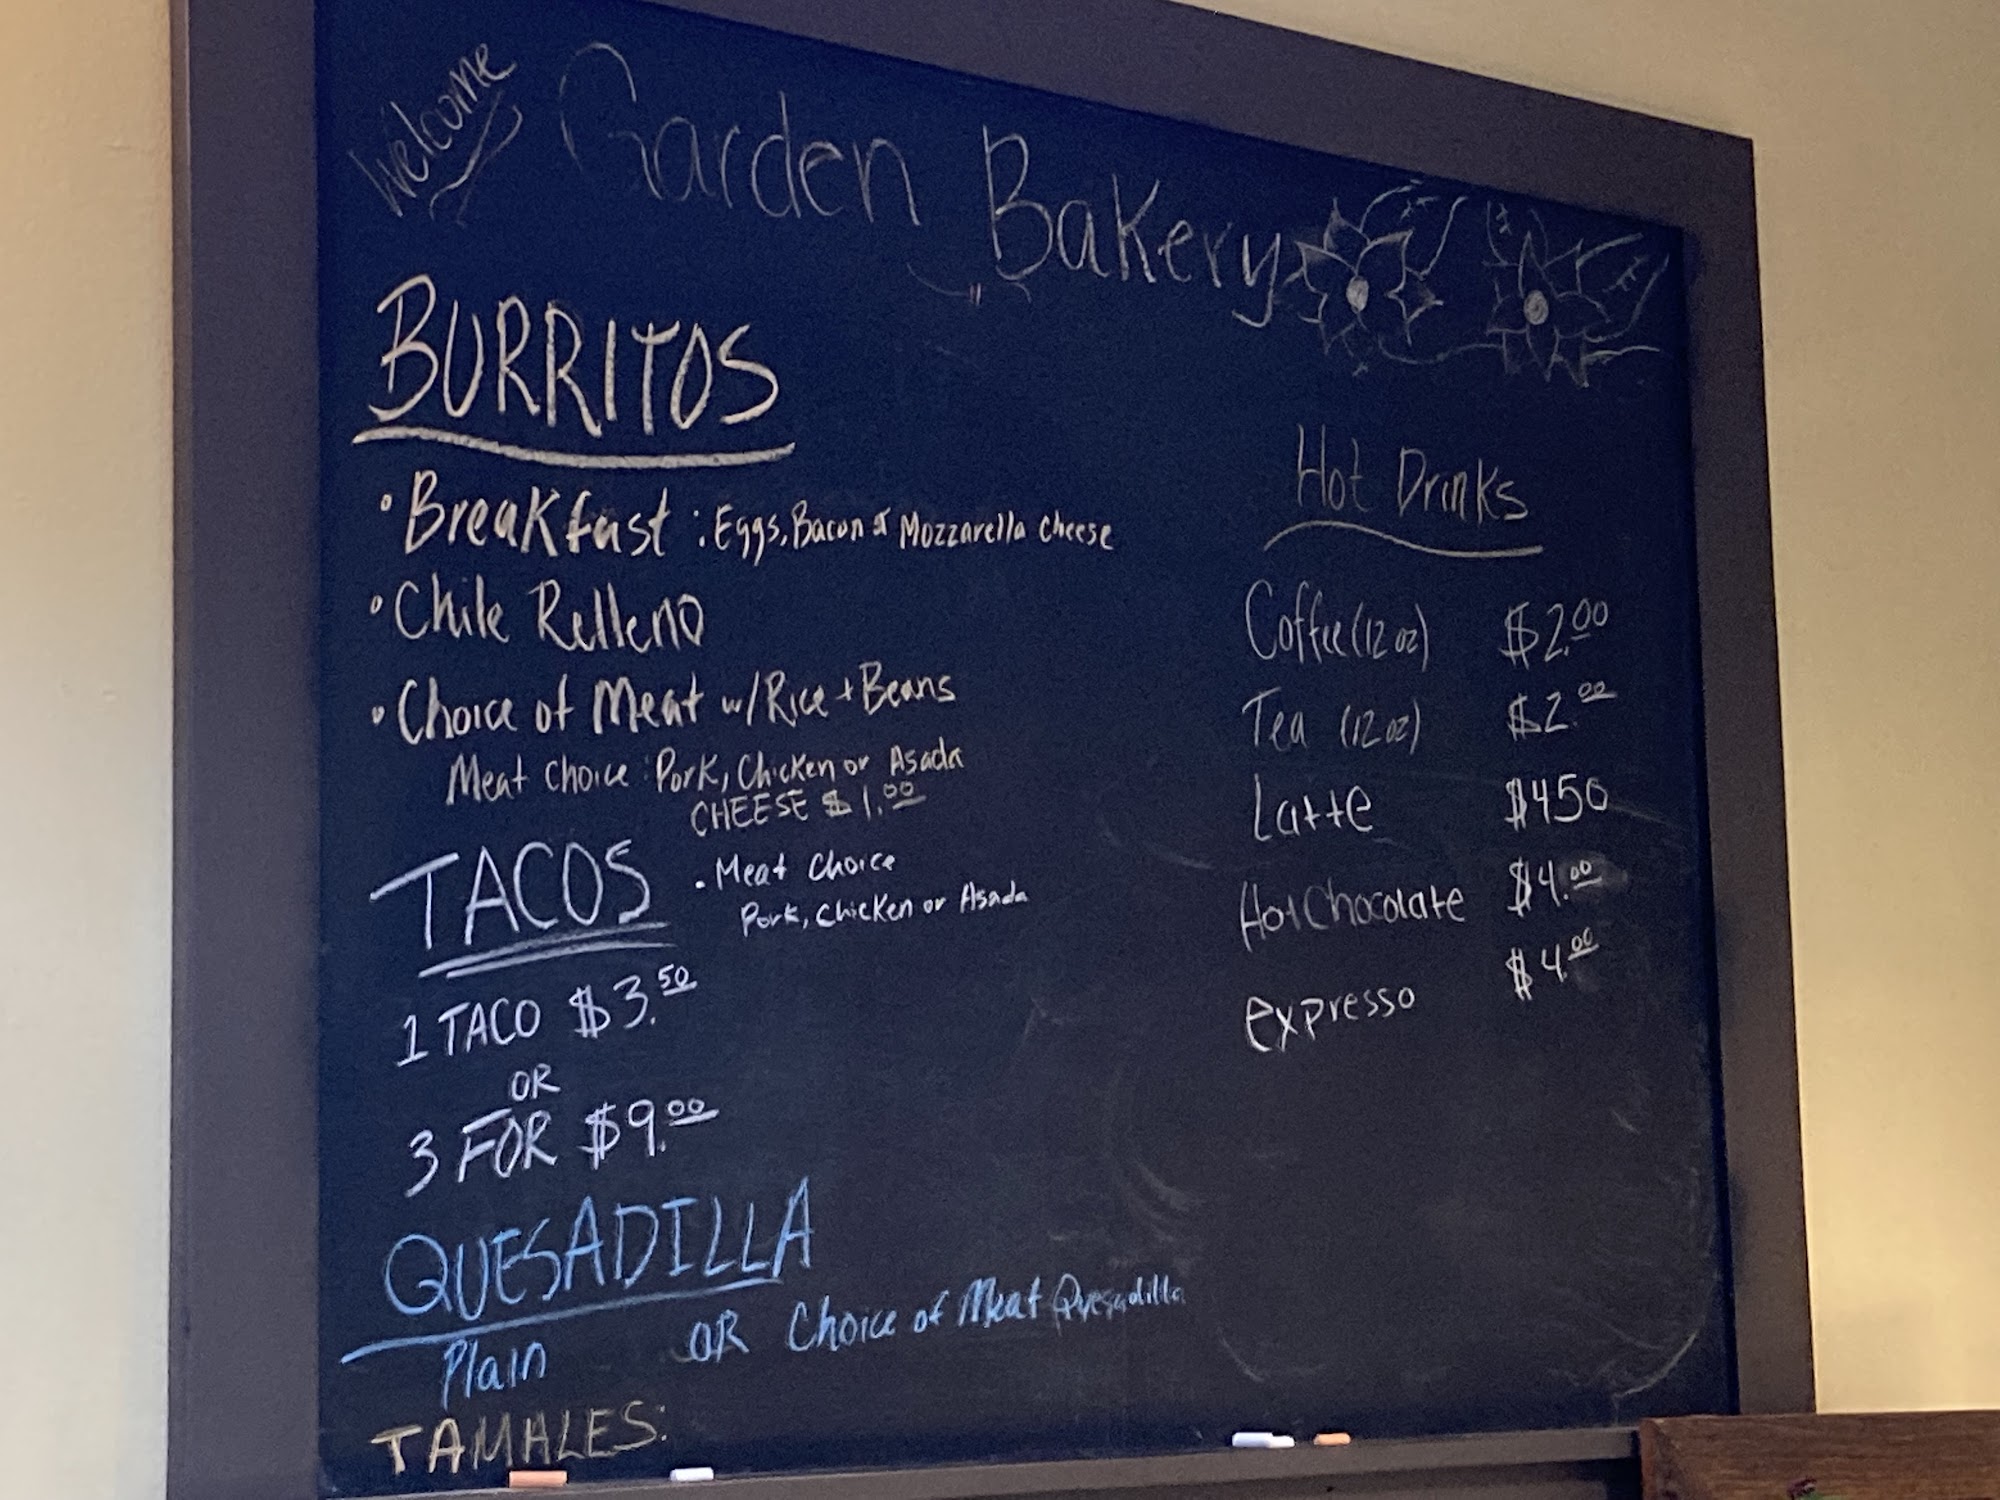 Welcome
Garden Bakery
BURRITOS
• Breakfast : Eggs, Bacon & Mozzarella Cheese
• Chile Relleno
• Choice of Meat w/Rice + Beans
Meat Choice : Pork, Chicken or Asada
CHEESE $1.00
TACOS
• Meat Choice
Pork, Chicken or Asada
1 TACO $3.50
OR
3 FOR $9.00
QUESADILLA
Plain OR Choice of Meat Quesadilla
TAMALES:
Hot Drinks
Coffee (12 oz) $2.00
Tea (12 oz) $2.00
Latte $450
Hot Chocolate $4.00
expresso $4.00